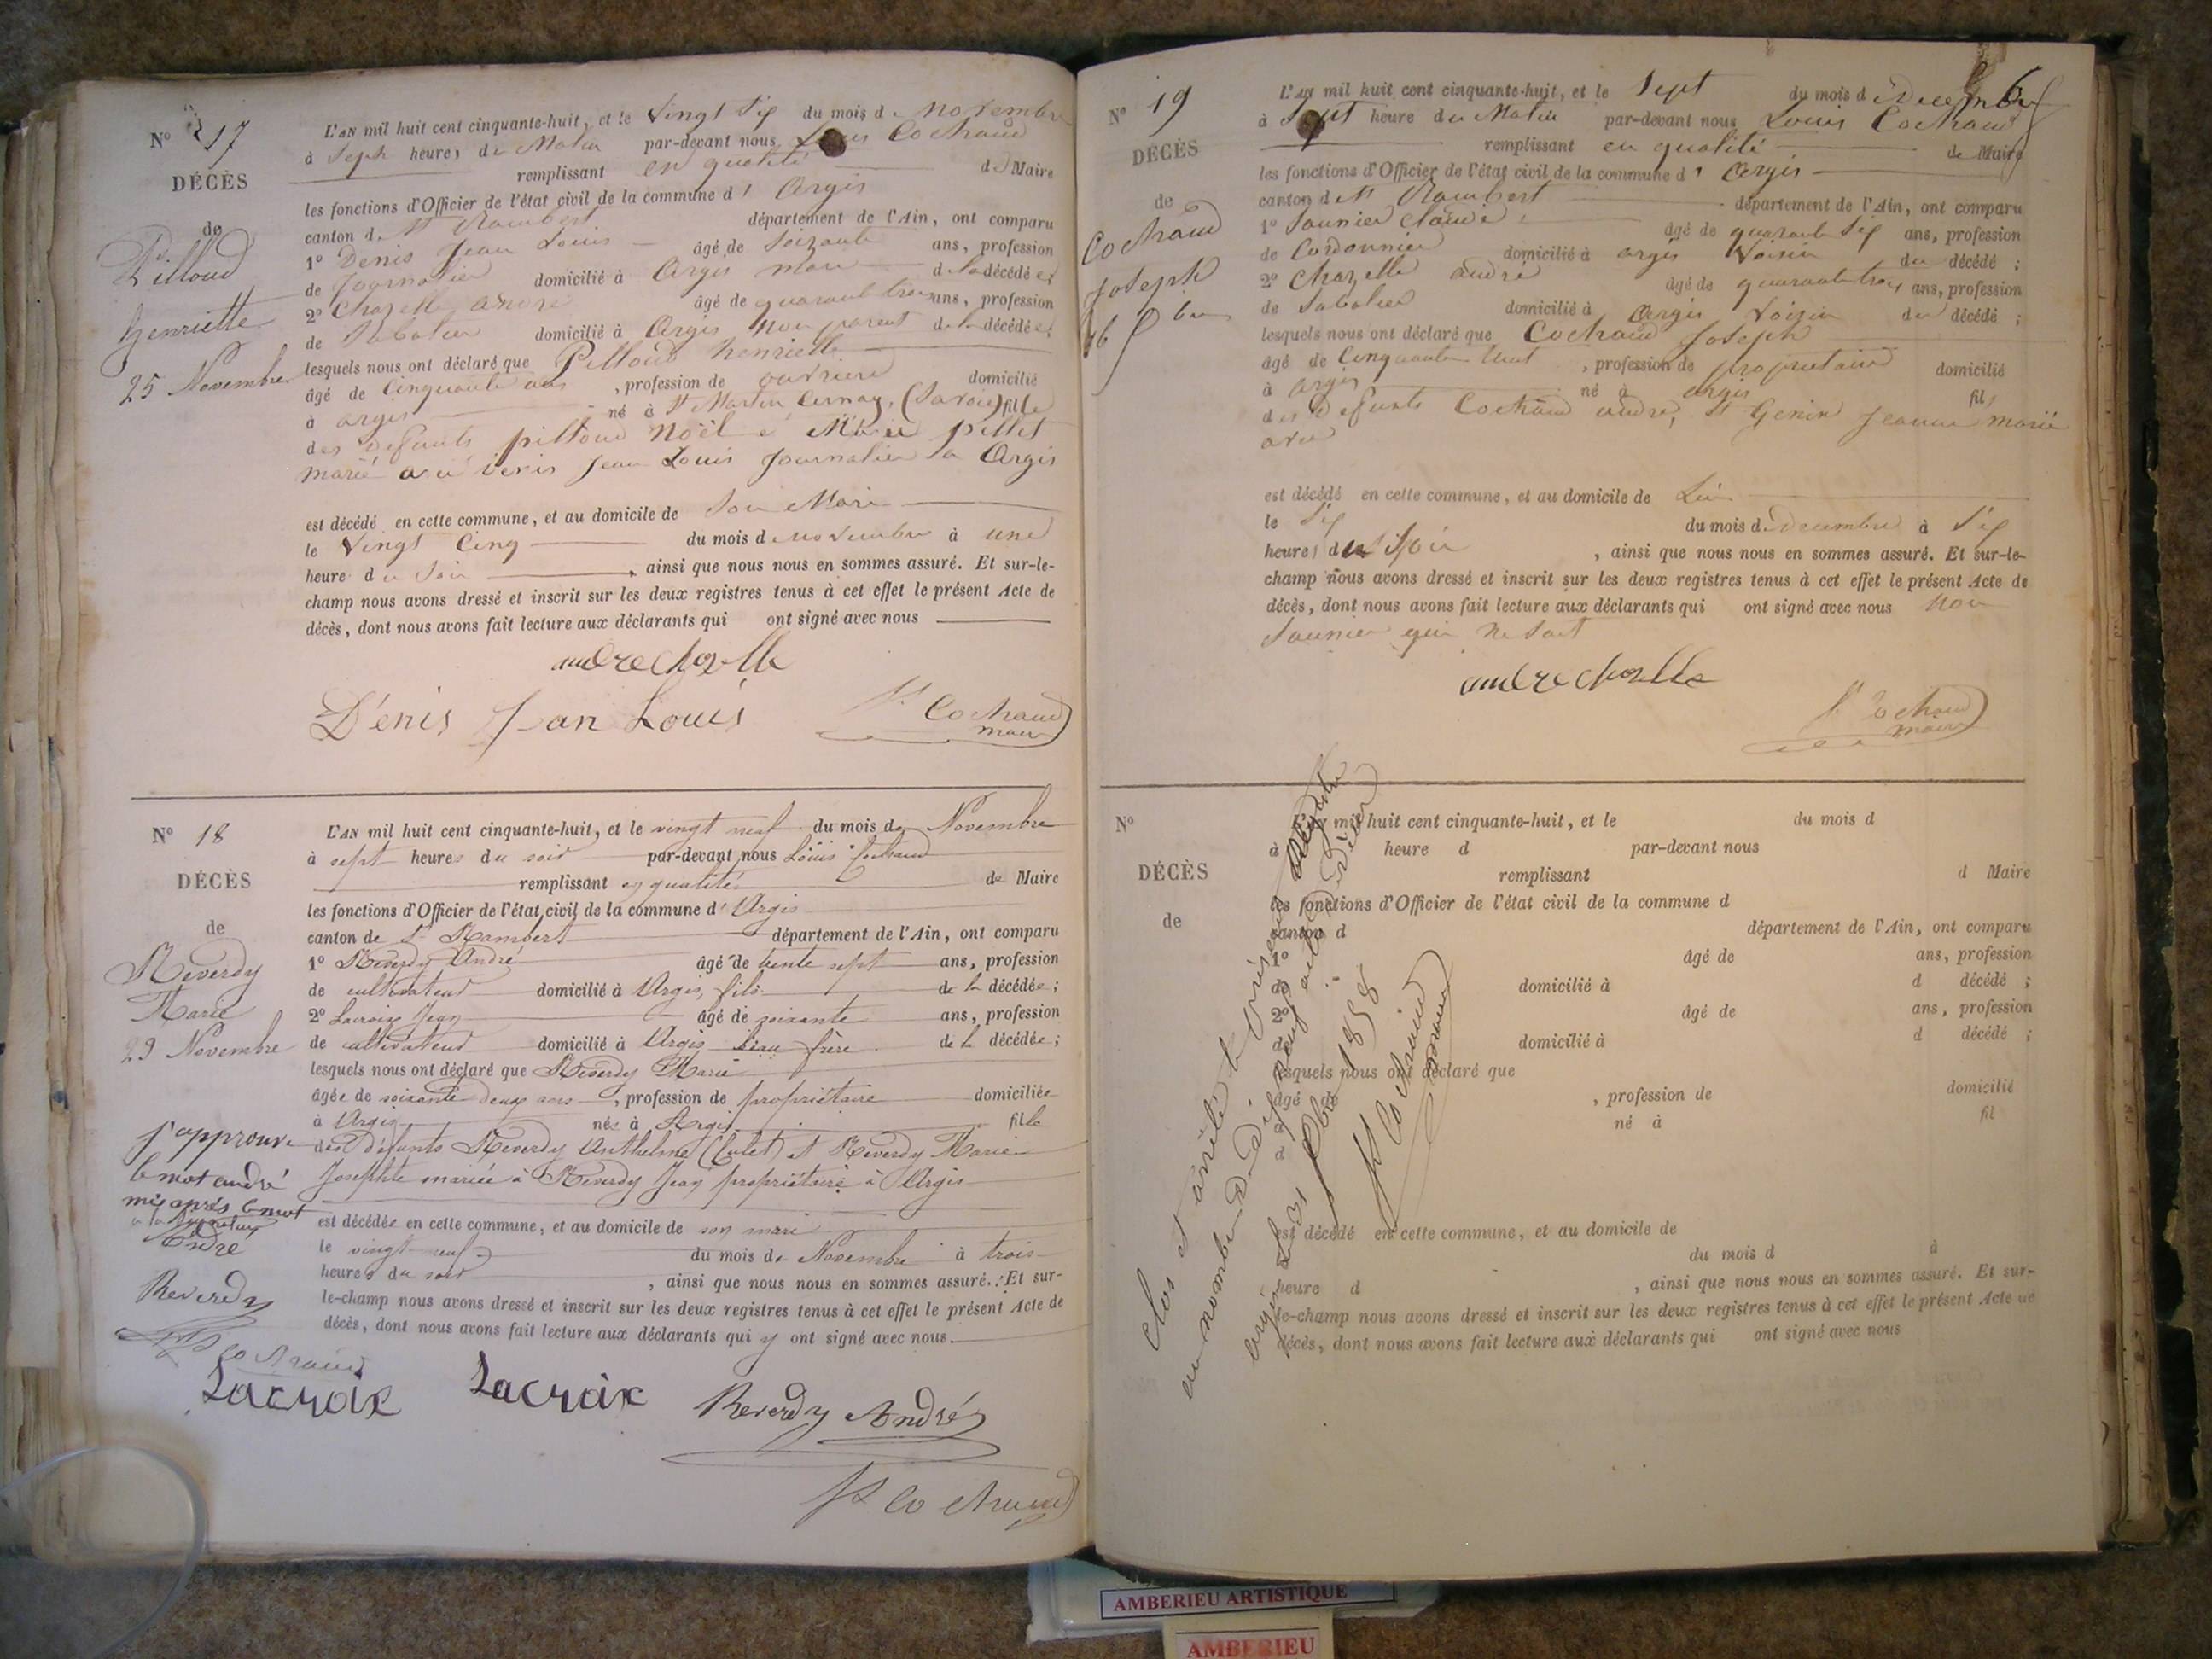 N° 17
DÉCÈS
de
Pilloud
henriette
25 Novembre
L'AN mil huit cent cinquante-huit, et le Vingt Six du mois d. Novembre
à Sept heures du Matin par-devant nous Louis Cochaud
remplissant en qualité de Maire
les fonctions d'Officier de l'état civil de la commune d' Argis
canton d. St Rambert département de l'Ain, ont comparu
1° Denis Jean Louis âgé de Soixante ans, profession
de Journalier domicilié à Argis mari de la décédée;
2° Chazelle andré âgé de quarante trois ans, profession
de Sabotier domicilié à Argis non parent de la décédée;
lesquels nous ont déclaré que Pilloud henriette
âgé de Cinquante ans, profession de ouvriere domicilié
à argis né à St Martin Cernay, (Savoie) fille
des defunts pilloud Noël et Marie pillet
marié avec Denis Jean Louis Journalier a Argis
est décédé en cette commune, et au domicile de Son Mari
le Vingt Cinq du mois d. novembre à une
heure du Soir, ainsi que nous nous en sommes assuré. Et sur-le-
champ nous avons dressé et inscrit sur les deux registres tenus à cet effet le présent Acte de
décès, dont nous avons fait lecture aux déclarants qui ont signé avec nous
andre chozelle
Dénis Jean Louis
Ls Cochaud
maire
N° 18
DÉCÈS
de
Reverdy
Marie
29 Novembre
L'AN mil huit cent cinquante-huit, et le vingt neuf du mois de Novembre
à sept heures du soir par-devant nous Louis Cochaud
remplissant en qualité de Maire
les fonctions d'Officier de l'état civil de la commune d' Argis
canton de St Rambert département de l'Ain, ont comparu
1° Reverdy André âgé de trente sept ans, profession
de cultivateur domicilié à Argis, fils de la décédée;
2° Lacroix Jean âgé de soixante ans, profession
de cultivateur domicilié à Argis beau frère de la décédée;
lesquels nous ont déclaré que Reverdy Marie
âgée de soixante deux ans, profession de propriétaire domiciliée
à Argis née à Argis fille
des défunts Reverdy Anthelme (Culet) et Reverdy Marie
Josephte mariée à Reverdy Jean propriétaire à Argis
est décédée en cette commune, et au domicile de son mari
le vingt-neuf du mois de Novembre à trois
heures du soir, ainsi que nous nous en sommes assuré. Et sur-
le-champ nous avons dressé et inscrit sur les deux registres tenus à cet effet le présent Acte de
décès, dont nous avons fait lecture aux déclarants qui y ont signé avec nous.
j'approuve
le mot andré
mis après le mot
André
Reverdy
Ls Cochaud
Lacroix
Lacroix
Reverdy André
Ls Cochaud
6
N° 19
DÉCÈS
de
Cochaud
Joseph
6 Xbre
L'AN mil huit cent cinquante-huit, et le Sept du mois d. Decembre
à Sept heure du Matin par-devant nous Louis Cochaud
remplissant en qualité de Maire
les fonctions d'Officier de l'état civil de la commune d' Argis
canton d. St Rambert département de l'Ain, ont comparu
1° Saunier Claude âgé de quarante Six ans, profession
de Cordonnier domicilié à argis Voisin du décédé;
2° Chazelle andré âgé de quarante trois ans, profession
de Sabotier domicilié à Argis Voisin du décédé;
lesquels nous ont déclaré que Cochaud Joseph
âgé de Cinquante huit, profession de proprietaire domicilié
à argis né à argis fil
des Defunts Cochaud andré, St Genin Jeanne marié
avec
est décédé en cette commune, et au domicile de Lui
le Six du mois de Decembre à Six
heures du Soir, ainsi que nous nous en sommes assuré. Et sur-le-
champ nous avons dressé et inscrit sur les deux registres tenus à cet effet le présent Acte de
décès, dont nous avons fait lecture aux déclarants qui ont signé avec nous Non
Saunier qui ne Sait
andre chozelle
Ls Cochaud
maire
N°
DÉCÈS
de
L'AN mil huit cent cinquante-huit, et le du mois d
à heure d par-devant nous
remplissant d Maire
les fonctions d'Officier de l'état civil de la commune d
canton d département de l'Ain, ont comparu
1° âgé de ans, profession
de domicilié à d décédé;
2° âgé de ans, profession
de domicilié à d décédé;
lesquels nous ont déclaré que
âgé de, profession de domicilié
à né à fil
d
est décédé en cette commune, et au domicile de
le du mois d à
heure d, ainsi que nous nous en sommes assuré. Et sur-
le-champ nous avons dressé et inscrit sur les deux registres tenus à cet effet le présent Acte de
décès, dont nous avons fait lecture aux déclarants qui ont signé avec nous
Clos et arrêté le présent Registre
au nombre de dix neuf actes de Décès
argis le 31 Xbre 1858
Ls Cochaud
maire
AMBERIEU ARTISTIQUE
AMBERIEU